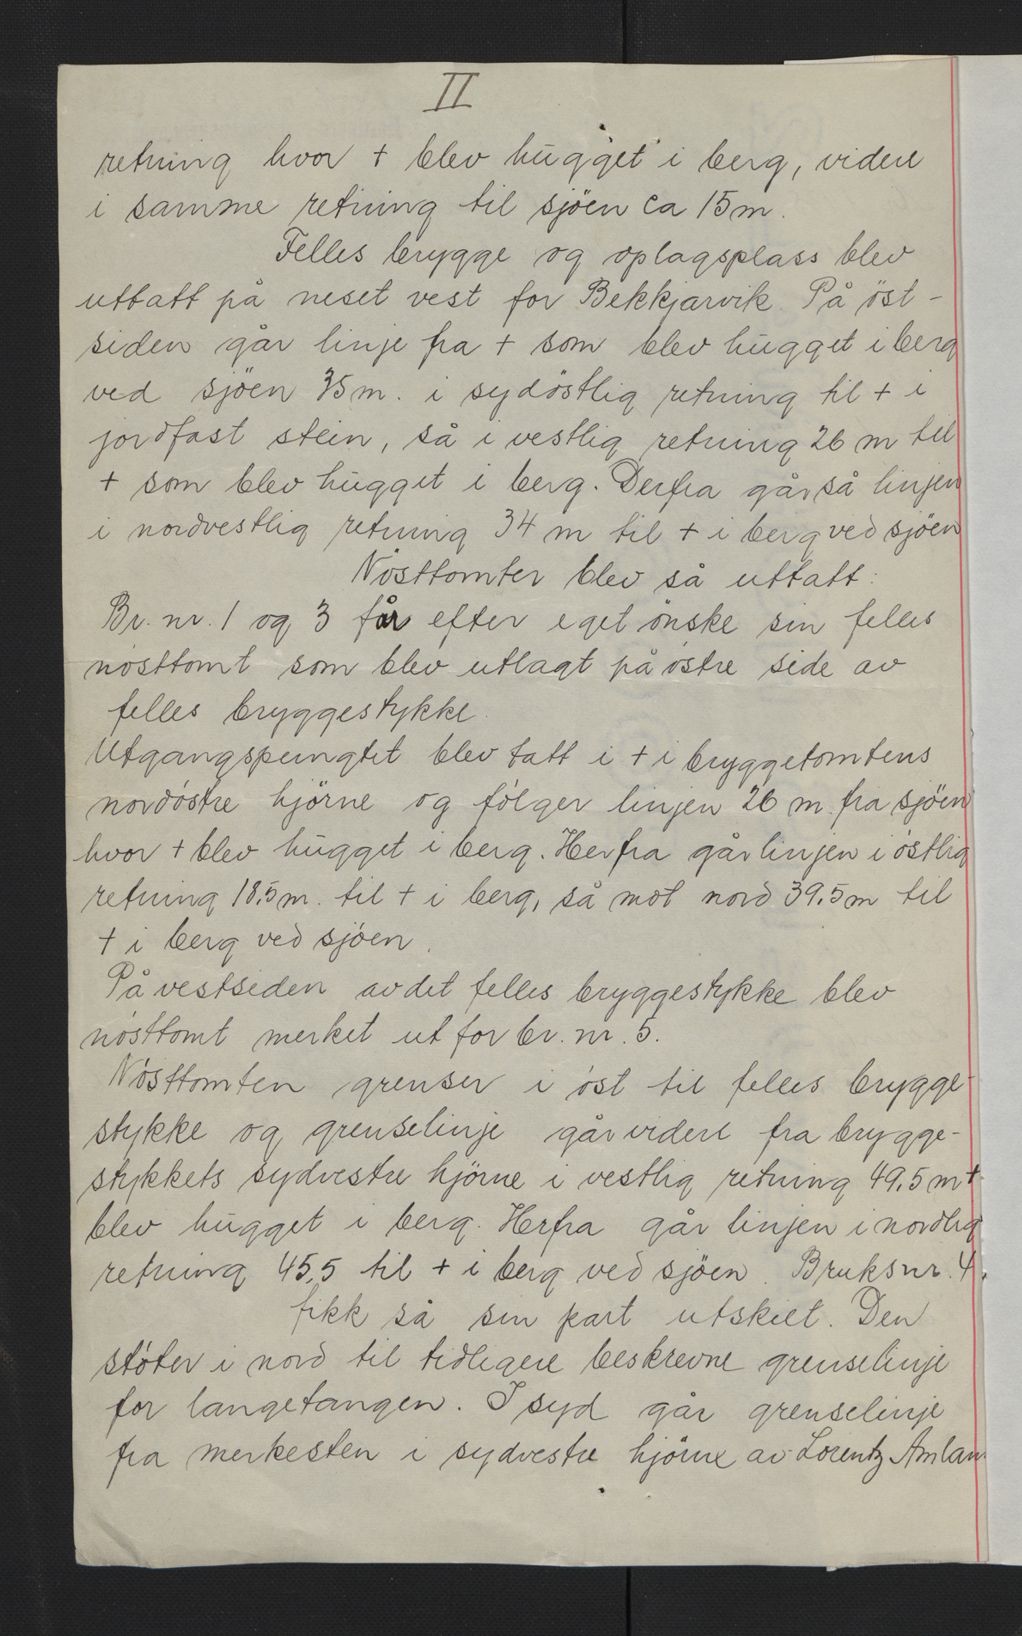 II
retning hvor + blev hugget i berg, videre
i samme retning til sjöen ca 15 m.
Felles brygge og oplagsplass blev
uttatt på neset vest for Bekkjarvik. På öst-
siden går linje fra + som blev hugget i berg
ved sjöen 35 m. i sydöstlig retning til + i
jordfast stein, så i vestlig retning 26 m til
+ som blev hugget i berg. Derfra går så linjen
i nordvestlig retning 34 m til + i berg ved sjöen
Nösttomter blev så uttatt:
Br. nr. 1 og 3 får efter eget önske sin felles
nösttomt som blev utlagt på östre side av
felles bryggestykke.
Utgangspungtet blev tatt i + i bryggetomtens
nordöstre hjörne og fölger linjen 26 m. fra sjöen
hvor + blev hugget i berg. Herfra går linjen i östlig
retning 18.5 m. til + i berg, så mot nord 39.5 m til
+ i berg ved sjöen.
På vestsiden av det felles bryggestykke blev
nösttomt merket ut for br. nr. 5.
Nösttomten grenser i öst til felles brygge-
stykke og grenselinje går videre fra brygge-
stykkets sydvestre hjörne i vestlig retning 49.5 m +
blev hugget i berg. Herfra går linjen i nordlig
retning 45,5 til + i berg ved sjöen. Bruksnr. 4.
fikk så sin part utskilt. Den
stöter i nord til tidligere beskrevne grenselinje
for langetangen. I syd går grenselinje
fra merkesten i sydvestre hjörne av Lorentz Amlan